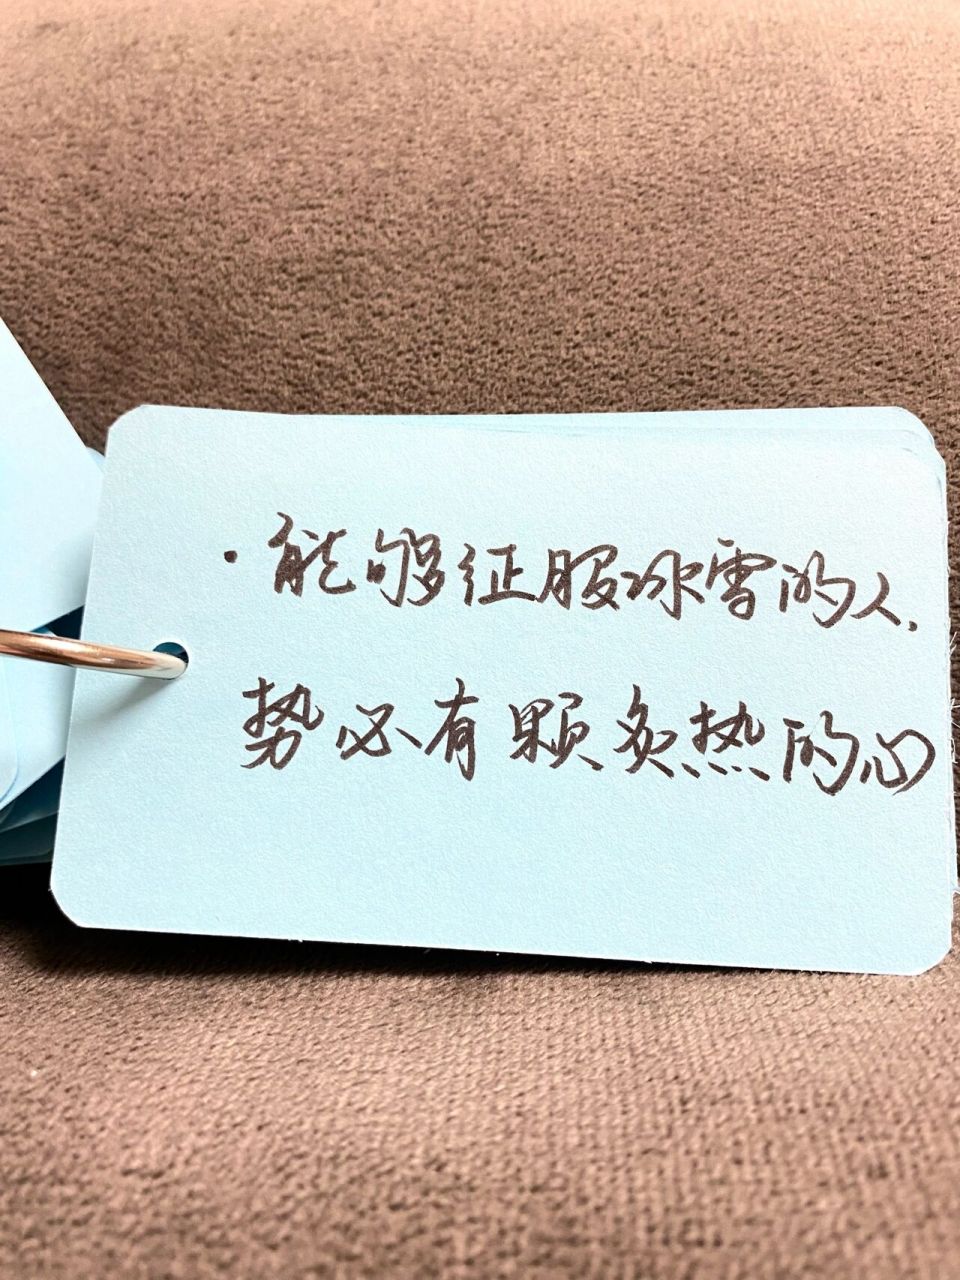 ·能够征服冰雪的人,
势必有颗炙热的心